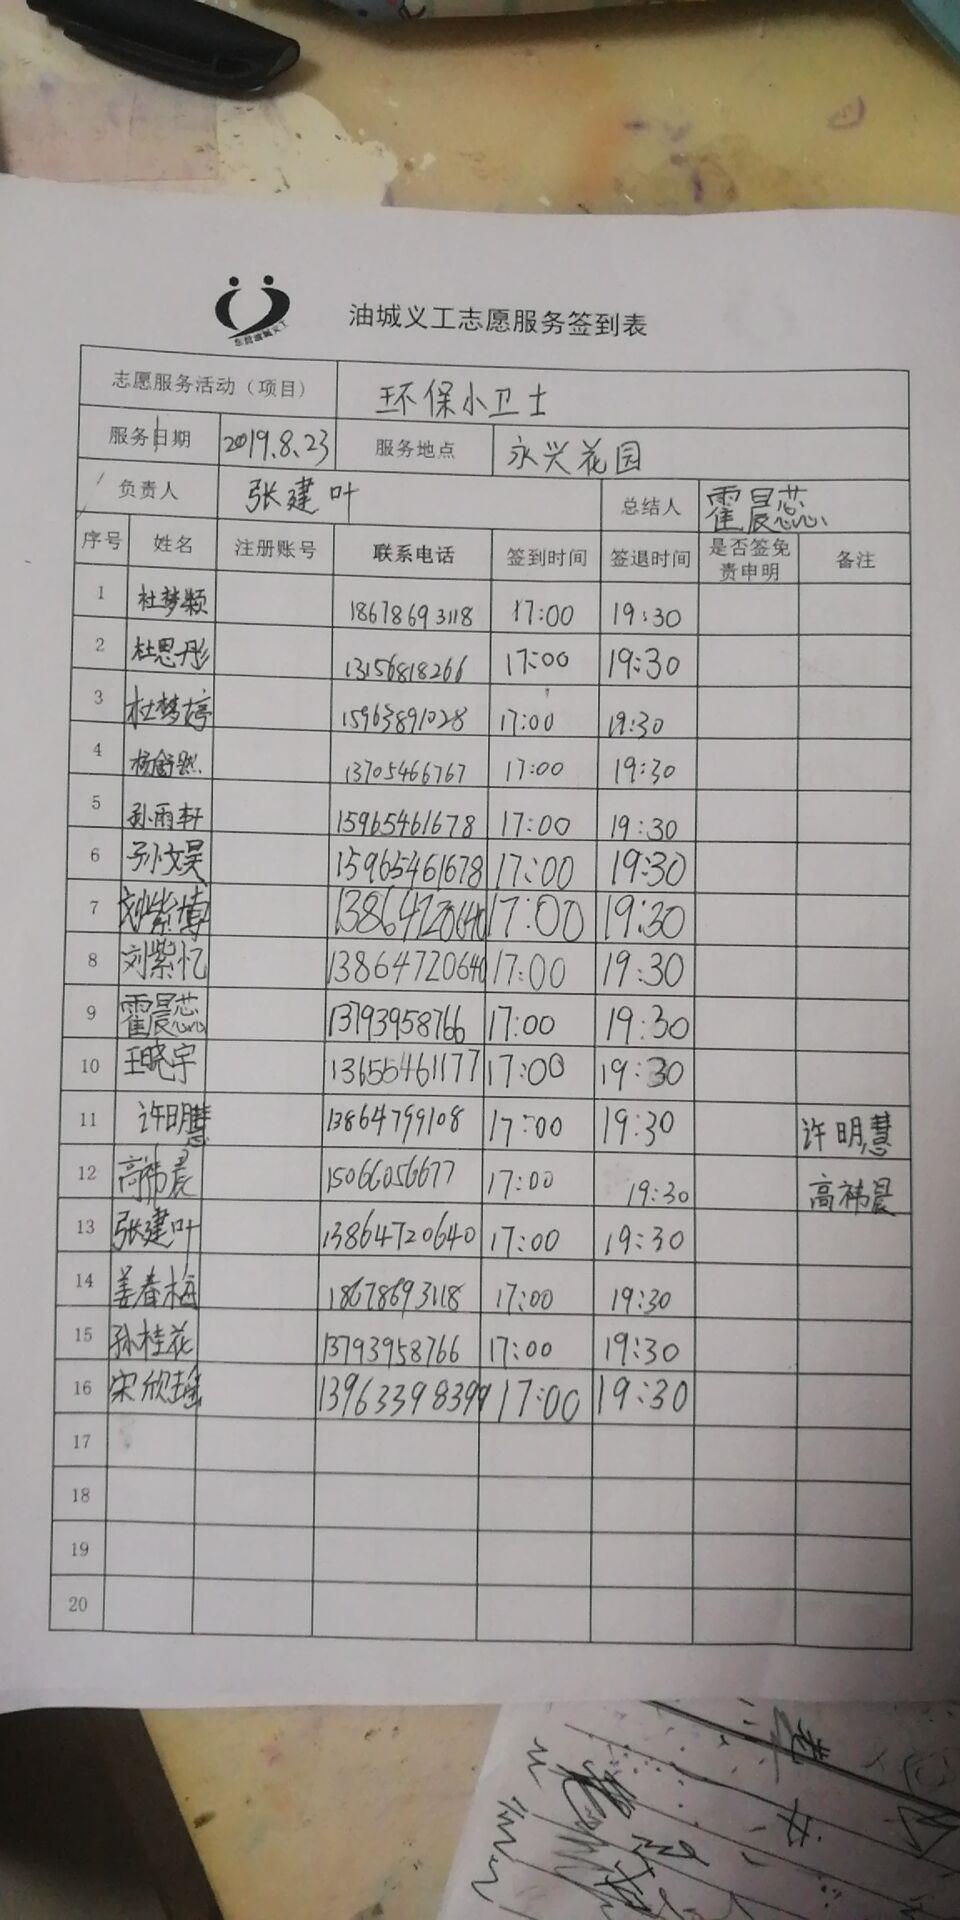 东营油城义工
油城义工志愿服务签到表
志愿服务活动（项目） 环保小卫士
服务日期 2019.8.23 服务地点 永兴花园
负责人 张建叶 总结人 霍晨蕊
序号 姓名 注册账号 联系电话 签到时间 签退时间 是否签免责申明 备注
1 杜梦颖 18678693118 17:00 19:30
2 杜思彤 13156818266 17:00 19:30
3 杜梦婷 15963891028 17:00 19:30
4 杨舒然 13705466767 17:00 19:30
5 孙雨轩 15965461678 17:00 19:30
6 孙文昊 15965461678 17:00 19:30
7 刘紫博 13864720640 17:00 19:30
8 刘紫忆 13864720640 17:00 19:30
9 霍晨蕊 13793958766 17:00 19:30
10 王晓宇 13655461177 17:00 19:30
11 许明慧 13864799108 17:00 19:30 许明慧
12 高祎晨 15066056677 17:00 19:30 高祎晨
13 张建叶 13864720640 17:00 19:30
14 姜春梅 18678693118 17:00 19:30
15 孙桂花 13793958766 17:00 19:30
16 宋欣瑶 13963398399 17:00 19:30
17
18
19
20